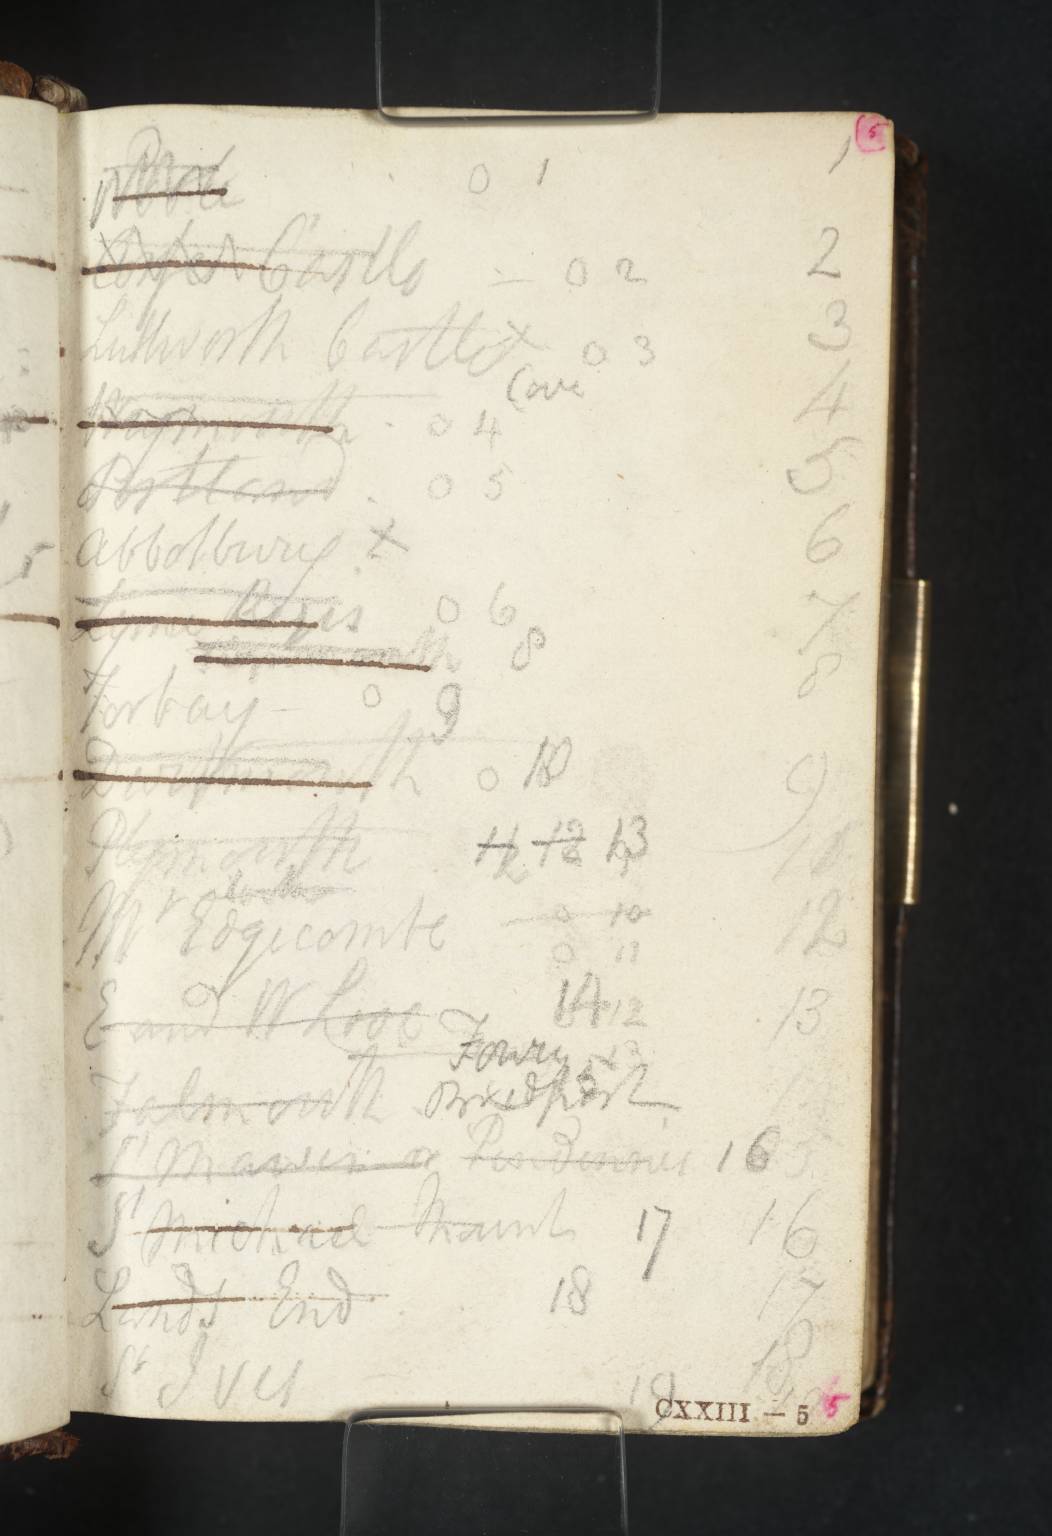 5
Poole 0 1 1
Corfe Castle – 0 2 2
Lullworth Castle x 0 3 3
Cove
Weymouth . 0 4 4
Portland . 0 5 5
Abbotbury x 6
Lyme Regis 0 6 7
8 8
Torbay – 0 9
Dartmouth 0 10 9
Plymouth 11 12 13 10
Mt Edgecombe 0 10 12
0 11
E and W Looe 14 12 13
Fowey 13
Falmouth Bridport 15
St Mawes a Pendennis 16 15
St Michael Mount 17 16
Lands End . 18 17
St Ives 19 18
CXXIII – 5 5